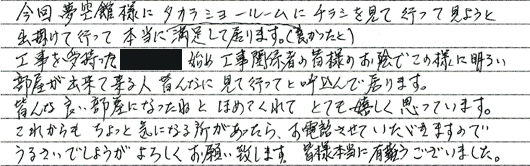 今回 夢空館様に タカラショールームに チラシを見て行って見ようと
出掛けて行って 本当に満足して居ります。(良かったと)
工事を受持った 始め 工事関係者の皆様のお陰でこの様に明るい
部屋が出来て来る人 皆んなに 見て行ってと呼込んで居ります。
皆んな 良い部屋になったねと ほめてくれて とても嬉しく 思っています。
これからも ちょっと 気になる所があったら、お電話させていただきますので
うるさいでしょうが よろしくお願い致します。皆様本当に有難うございました。